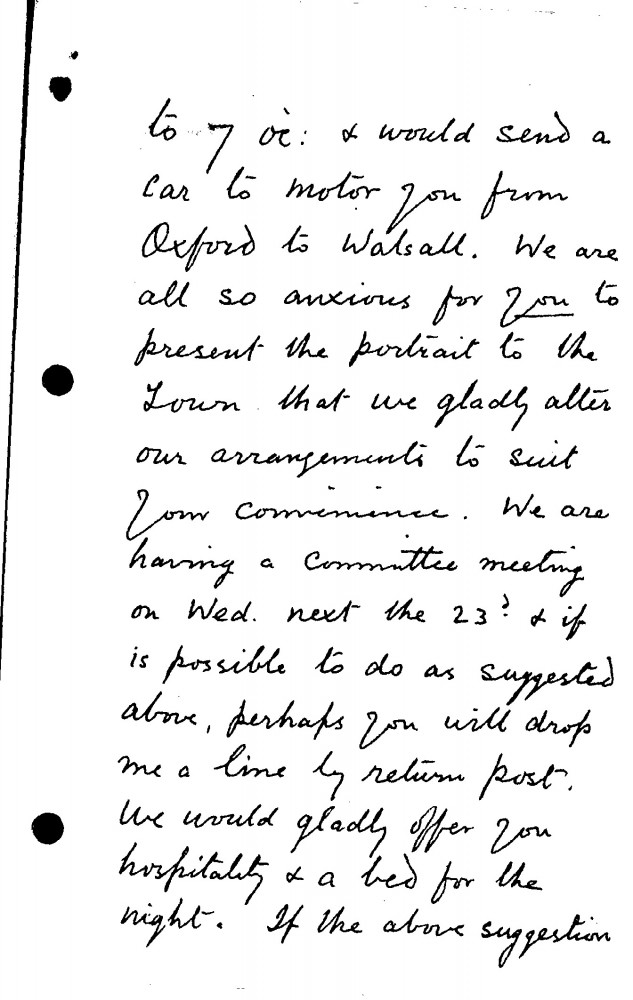 to 7 oc: & would send a
car to motor you from
Oxford to Walsall. We are
all so anxious for you to
present the portrait to the
Town that we gladly alter
our arrangements to suit
your convenience. We are
having a Committee meeting
on Wed. next the 23d & if
is possible to do as suggested
above, perhaps you will drop
me a line by return post.
We would gladly offer you
hospitality & a bed for the
night. If the above suggestion